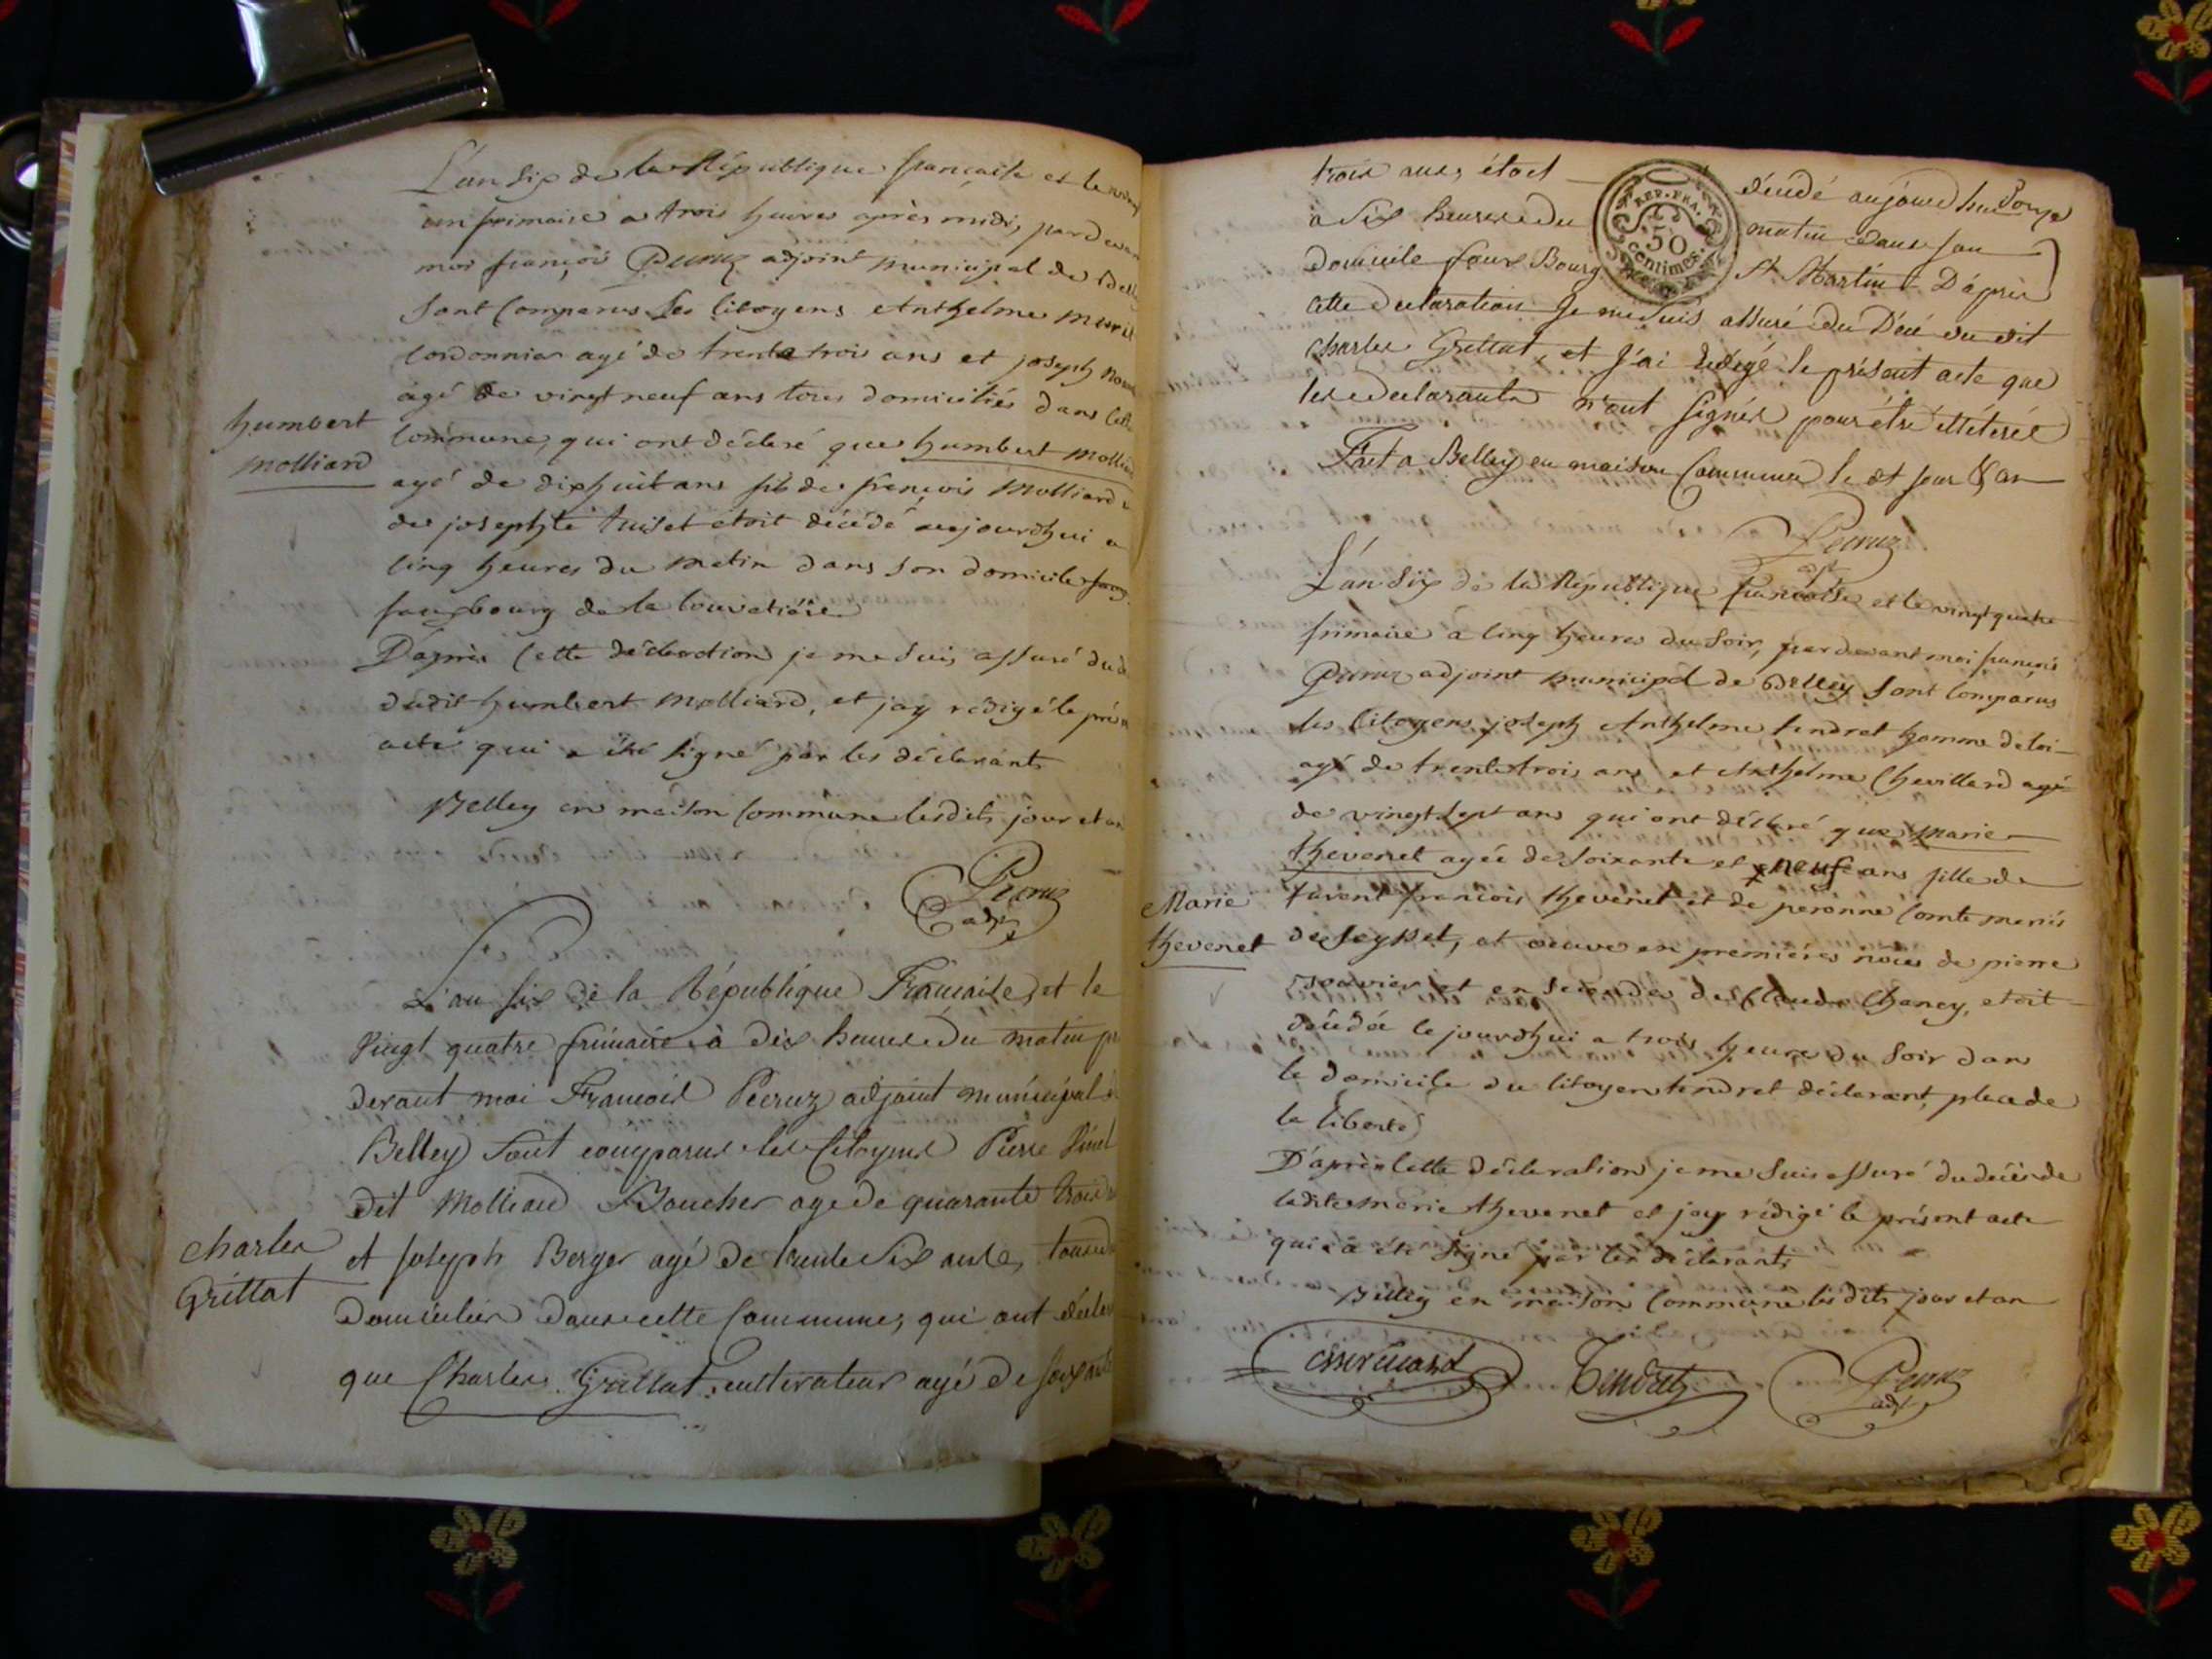 L'an six de la République française et le vingt
un frimaire a trois heures après midi, pardevan
moi françois Peruz adjoint municipal de Bell
sont Comparus les Citoyens Anthelme
Cordonnier agé de trente trois ans et joseph
agé de vingt neuf ans tous domiciliés dans Cette
humbert
molliard
Commune, qui ont déclaré que humbert molliard
agé de dixhuit ans fils de françois Molliard
de josephte étoit décédé aujourdhui a
Cinq heures du matin dans son domicile
fauxbourg de la
D'après Cette déclaration je me suis assuré du
dudit humbert Molliard, et jay rédigé le prése
acte qui a été signé par les déclarants
Belley en maison Commune lesdits jour et an
Peruz
adjt
L'an six de la République Francaise, et le
Vingt quatre frimaire à dix heures du matin pr
devant moi Francois Peruz adjoint municipal d
Belley sont comparus les Citoyens Pierre
dit Molliard Boucher agé de quarante trois
Charles
Grillat
et Joseph Berger agé de trente six ans, tous
Domiciliés dans cette Commune, qui ont déclar
que Charles Grillat, cultivateur agé de soixante
trois ans, étoit décédé aujourd'hui
à six heures du matin dans son
Domicile faux Bourg St Martin D'après
REP. FRA.
50
Centimes
cette declaration Je me suis assuré du Décé du dit
Charles Grillat, et J'ai rédigé le présent acte que
les declarants n'ont signés pour être illéterés
Fait a Belley en maison Commune le dt jour & an
Peruz
adjt
L'an six de la République française et le vingt quatre
frimaire a Cinq heures du soir, pardevant moi françois
Peruz adjoint municipal de Belley sont Comparus
les Citoyens joseph Anthelme tendret homme de loi
agé de trente trois ans et Anthelme Chevillard agé
de vingt sept ans qui ont déclaré que Marie
thevenet agée de soixante et neuf ans fille de
Marie
thevenet
furent francois thevenet et de peronne Comte mariés
de Seyssel, et veuve en premiéres nôces de pierre
et en secondes de Claude Chaney, etoit
décédée le jourdhui a trois heures du soir dans
le domicile du Citoyen tendret déclarant, place de
la liberté
D'après Cette déclaration je me suis assuré du décès de
ladite marie thevenet et jay rédigé le présent acte
qui a été signé par les déclarants
Belley en maison Commune lesdits jour et an
Chevillard Tendret Peruz
adjt